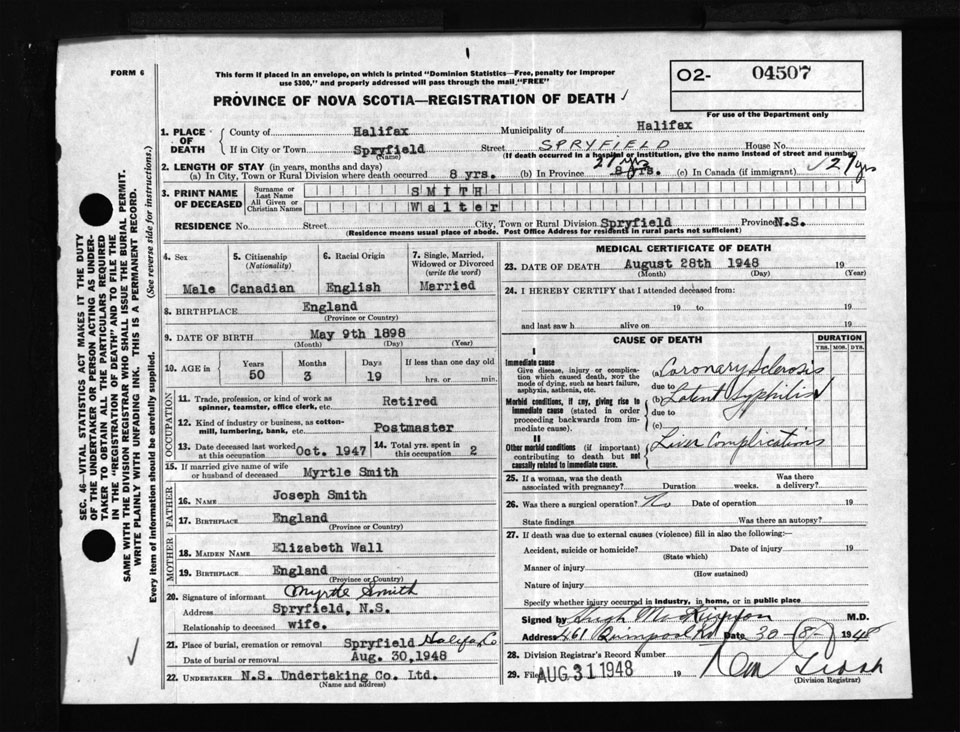 FORM 6
This form if placed in an envelope, on which is printed "Dominion Statistics—Free, penalty for improper
use $300," and properly addressed will pass through the mail "FREE"
PROVINCE OF NOVA SCOTIA—REGISTRATION OF DEATH
O2- 04507
For use of the Department only
SEC. 46—VITAL STATISTICS ACT MAKES IT THE DUTY
OF THE UNDERTAKER OR PERSON ACTING AS UNDER-
TAKER TO OBTAIN ALL THE PARTICULARS REQUIRED
IN THE "REGISTRATION OF DEATH" AND TO FILE THE
SAME WITH THE DIVISION REGISTRAR WHO SHALL ISSUE THE BURIAL PERMIT.
WRITE PLAINLY WITH UNFADING INK. THIS IS A PERMANENT RECORD.
Every item of information should be carefully supplied. (See reverse side for instructions.)
1. PLACE OF DEATH County of Halifax Municipality of Halifax
If in City or Town Spryfield Street SPRYFIELD House No.
(Name) (If death occurred in a hospital or institution, give the name instead of street and number)
2. LENGTH OF STAY (in years, months and days)
(a) In City, Town or Rural Division where death occurred 8 yrs. (b) In Province 8 yrs. 21 yrs (c) In Canada (if immigrant) 21 yrs
3. PRINT NAME OF DECEASED Surname or Last Name SMITH
All Given or Christian Names Walter
RESIDENCE No. Street City, Town or Rural Division Spryfield Province N.S.
(Residence means usual place of abode. Post Office Address for residents in rural parts not sufficient)
4. Sex Male
5. Citizenship (Nationality) Canadian
6. Racial Origin English
7. Single, Married, Widowed or Divorced (write the word) Married
8. BIRTHPLACE England
(Province or Country)
9. DATE OF BIRTH May 9th 1898
(Month) (Day) (Year)
10. AGE in Years 50 Months 3 Days 19 If less than one day old hrs. or min.
OCCUPATION
11. Trade, profession, or kind of work as spinner, teamster, office clerk, etc. Retired
12. Kind of industry or business, as cotton-mill, lumbering, bank, etc. Postmaster
13. Date deceased last worked at this occupation Oct. 1947 14. Total yrs. spent in this occupation 2
15. If married give name of wife or husband of deceased Myrtle Smith
FATHER
16. NAME Joseph Smith
17. BIRTHPLACE England
(Province or Country)
MOTHER
18. MAIDEN NAME Elizabeth Wall
19. BIRTHPLACE England
(Province or Country)
20. Signature of informant Myrtle Smith
Address Spryfield, N.S.
Relationship to deceased wife.
21. Place of burial, cremation or removal Spryfield Halifax Co
Date of burial or removal Aug. 30, 1948
22. UNDERTAKER N.S. Undertaking Co. Ltd.
(Name and address)
MEDICAL CERTIFICATE OF DEATH
23. DATE OF DEATH August 28th 1948
(Month) (Day) (Year)
24. I HEREBY CERTIFY that I attended deceased from:
19 to 19
and last saw h alive on 19
CAUSE OF DEATH
DURATION
YRS. MOS. DYS.
I
Immediate cause
Give disease, injury or complication which caused death, NOT the mode of dying, such as heart failure, asphyxia, asthenia, etc.
(a) Coronary Sclerosis
due to
Morbid conditions, if any, giving rise to immediate cause (stated in order proceeding backwards from immediate cause).
(b) Latent Syphilis
due to
(c)
II
Other morbid conditions (if important) contributing to death but not causally related to immediate cause.
Liver Complications
25. If a woman, was the death associated with pregnancy? Duration weeks. Was there a delivery?
26. Was there a surgical operation? No Date of operation 19
State findings Was there an autopsy?
27. If death was due to external causes (violence) fill in also the following:—
Accident, suicide or homicide? Date of injury 19
(State which)
Manner of injury
(How sustained)
Nature of injury
Specify whether injury occurred in industry, in home, or in public place
Signed by Hugh M. M.D.
Address 461 Quinpool Rd Date 30 - (8) - 1948
28. Division Registrar's Record Number
29. Filed AUG 31 1948 19
(Division Registrar)